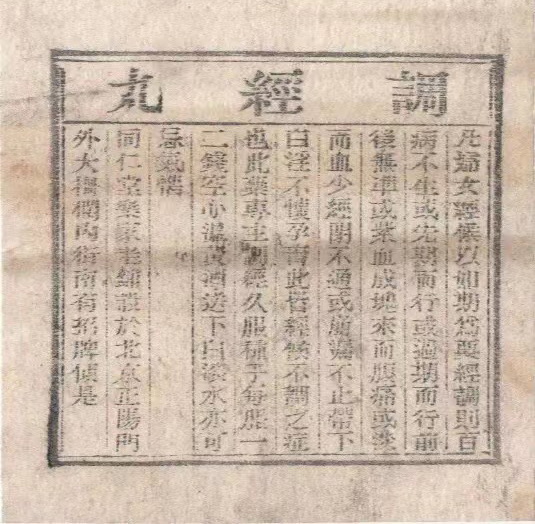 調經丸
凡婦女經候以如期爲要經調則百
病不生或先期而行或過期而行前
後無準或紫血成塊來而腹痛或淡
而血少經閉不通或崩漏不止帶下
白淫不懷孕育此皆經候不調之症
也此藥專主調經久服種子每服一
二錢空心溫黃酒送下白滾水亦可
忌氣惱
同仁堂樂家老鋪設於北京正陽門
外大柵欄內街南有招牌便是